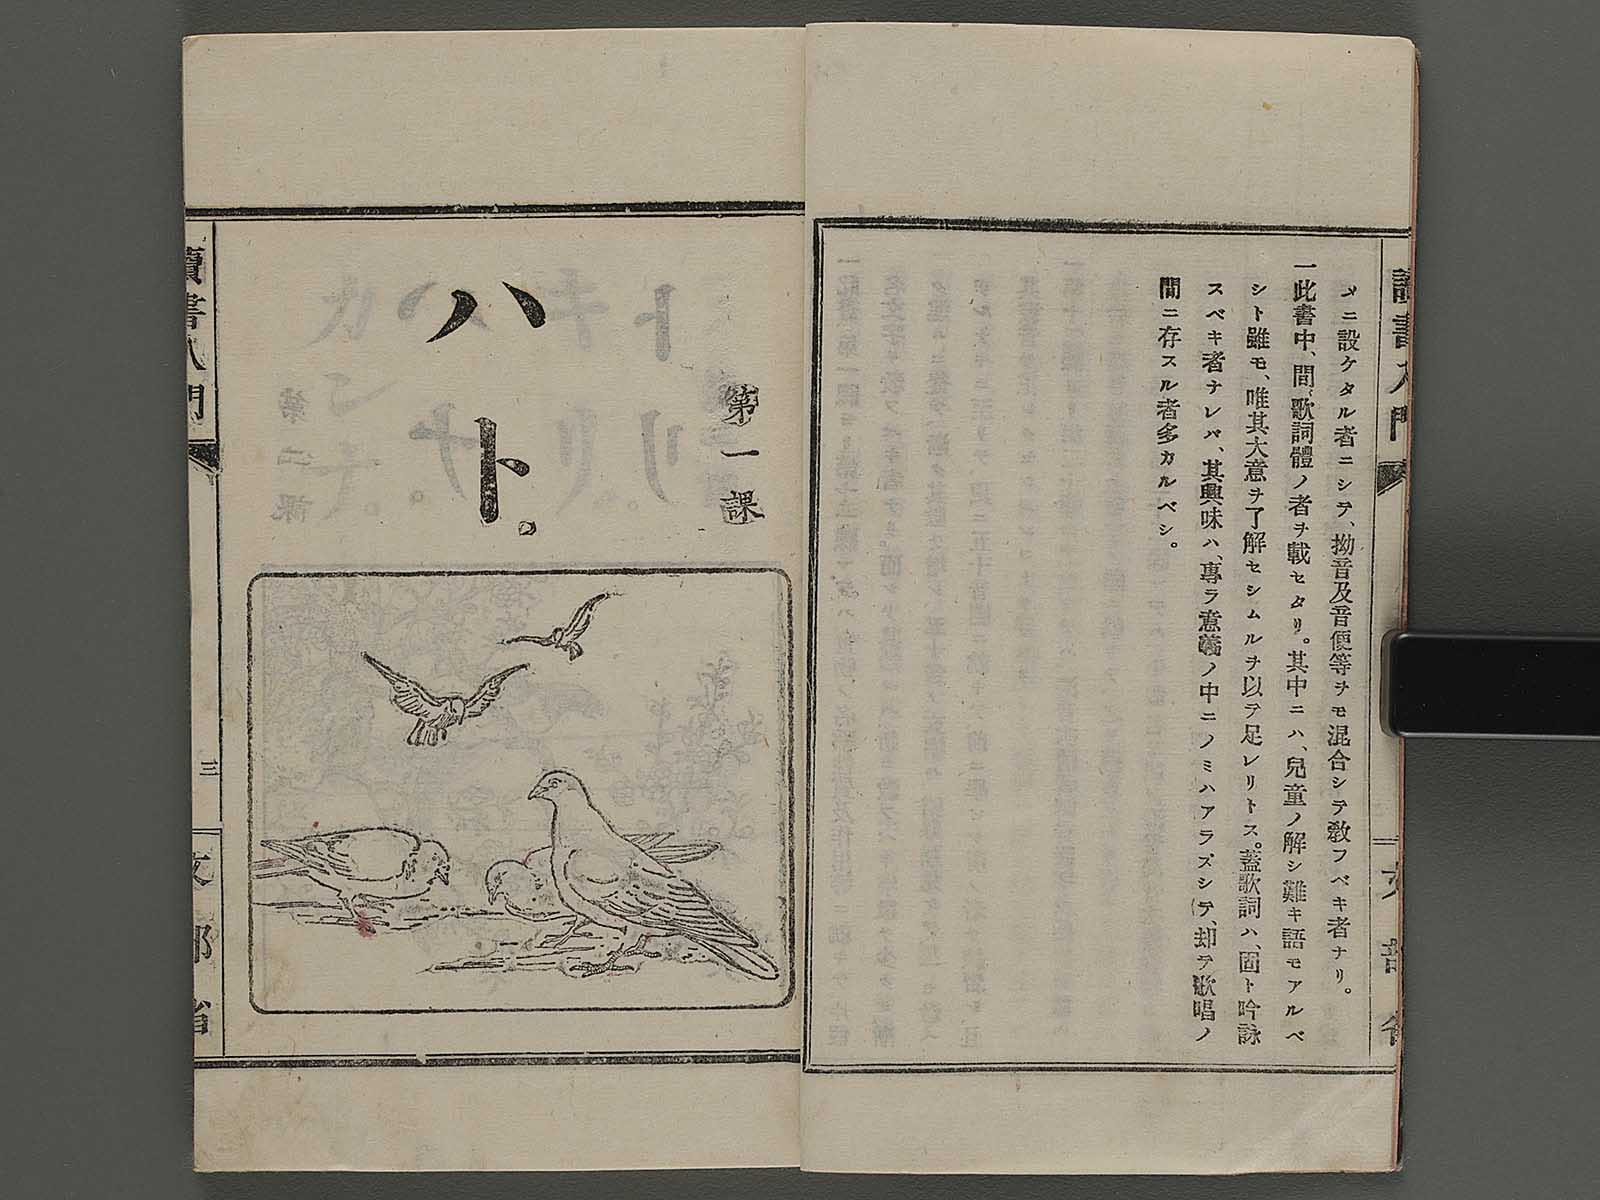 讀書入門
文部省
メニ設ケタル者ニシテ、拗音及音便等ヲモ混合シテ敎フベキ者ナリ。
一此書中、間〻歌詞體ノ者ヲ載セタリ。其中ニハ、兒童ノ解シ難キ語モアルベ
シト雖モ、唯其大意ヲ了解セシムルヲ以テ足レリトス。蓋歌詞ハ、固ト吟詠
スベキ者ナレバ、其興味ハ、專ラ意義ノ中ニノミハアラズシテ、却テ歌唱ノ
間ニ存スル者多カルベシ。
第一課
ハト。
讀書入門
三
文部省